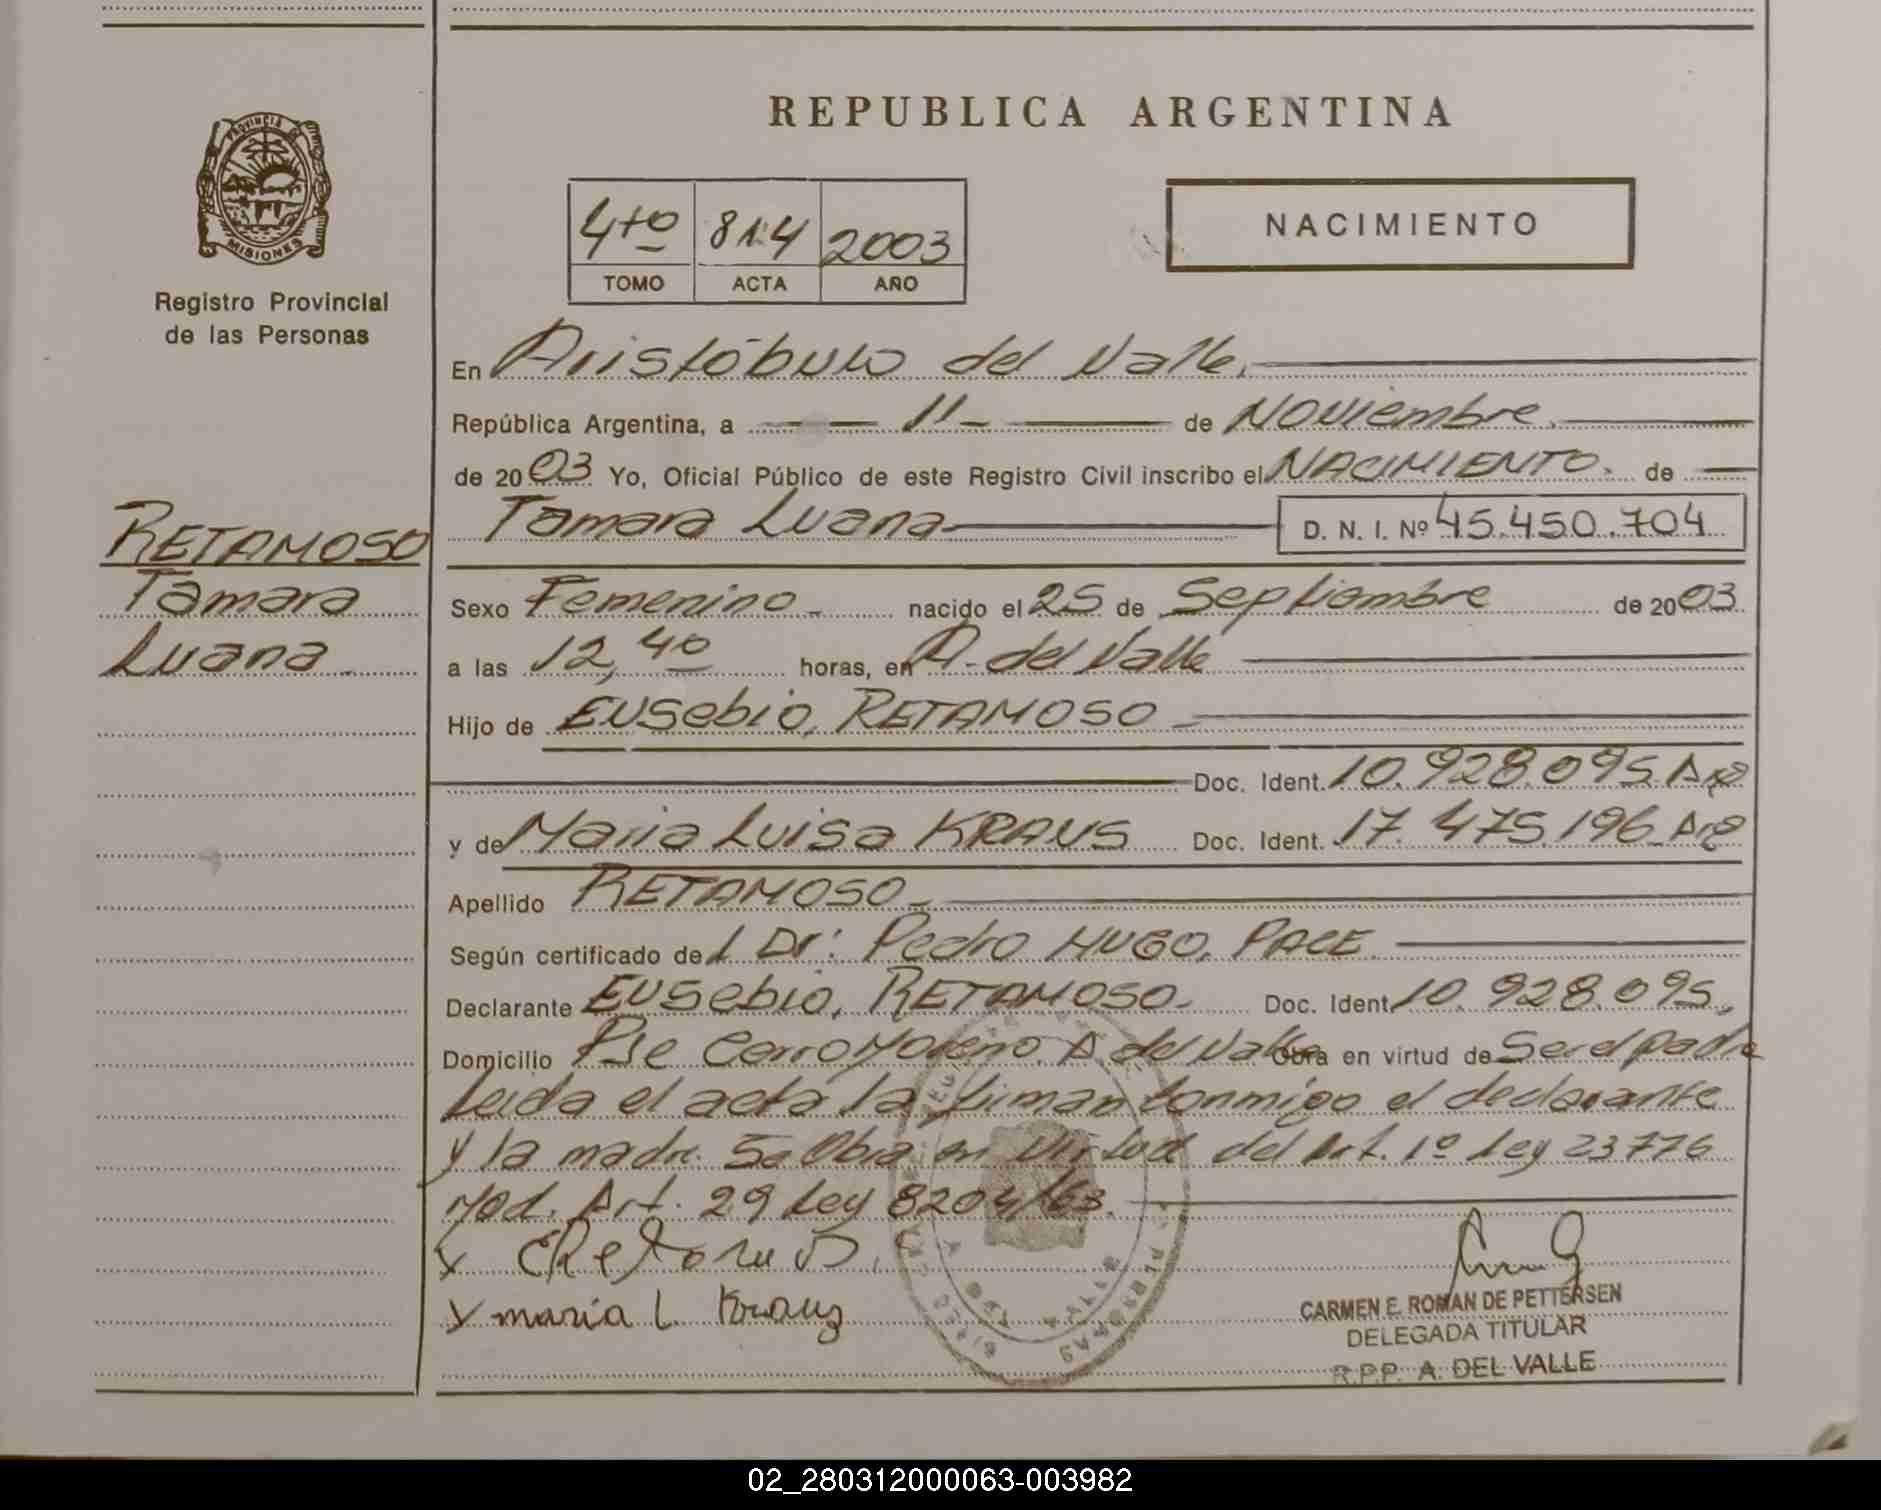 REPUBLICA ARGENTINA
PROVINCIA DE
MISIONES
Registro Provincial
de las Personas
4to 814 2003
TOMO ACTA AÑO
NACIMIENTO
En Aristóbulo del Valle.
República Argentina, a 11 de Noviembre.
de 2003 Yo, Oficial Público de este Registro Civil inscribo el NACIMIENTO. de
Tamara Luana D. N. I. Nº 45.450.704
RETAMOSO
Tamara
Luana
Sexo Femenino nacido el 25 de Septiembre de 2003
a las 12,40 horas, en A. del Valle
Hijo de Eusebio, RETAMOSO
Doc. Ident. 10.928.095. Arg
y de Maria Luisa KRAUS Doc. Ident. 17.475.196 Arg
Apellido RETAMOSO
Según certificado de l Dr: Pedro HUGO, PACE.
Declarante Eusebio, RETAMOSO. Doc. Ident. 10.928.095.
Domicilio Pje Cerro Moreno. A. del Valle Obra en virtud de Ser el padre
Leida el acta la firman conmigo el declarante
y la madre. Se Obra en Virtud del Art. 1º Ley 23776
Mod. Art. 29 Ley 8204/63.
X
X maria L. Kraus
CARMEN E. ROMAN DE PETTERSEN
DELEGADA TITULAR
R.P.P. A. DEL VALLE
02_280312000063-003982